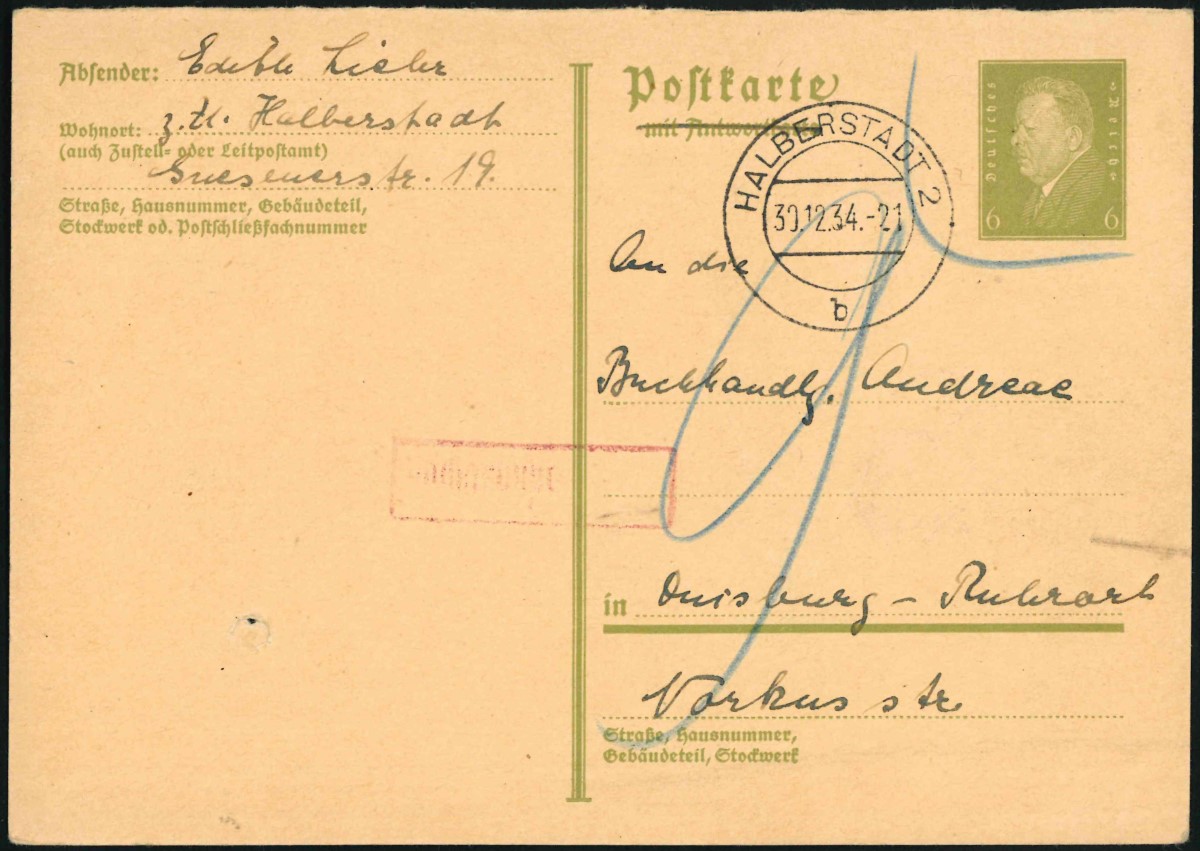 Absender: Edith Lieler
Wohnort: z. Zt. Halberstadt
(auch Zustell- oder Leitpostamt)
str. 19.
Straße, Hausnummer, Gebäudeteil,
Stockwerk od. Postschließfachnummer
Postkarte
mit Antwortkarte
Deutsches Reich
6 6
HALBERSTADT 2
30.12.34.-21
b
An die
Buchhandlg. Andreae
in Duisburg - Ruhrort
str.
Straße, Hausnummer,
Gebäudeteil, Stockwerk